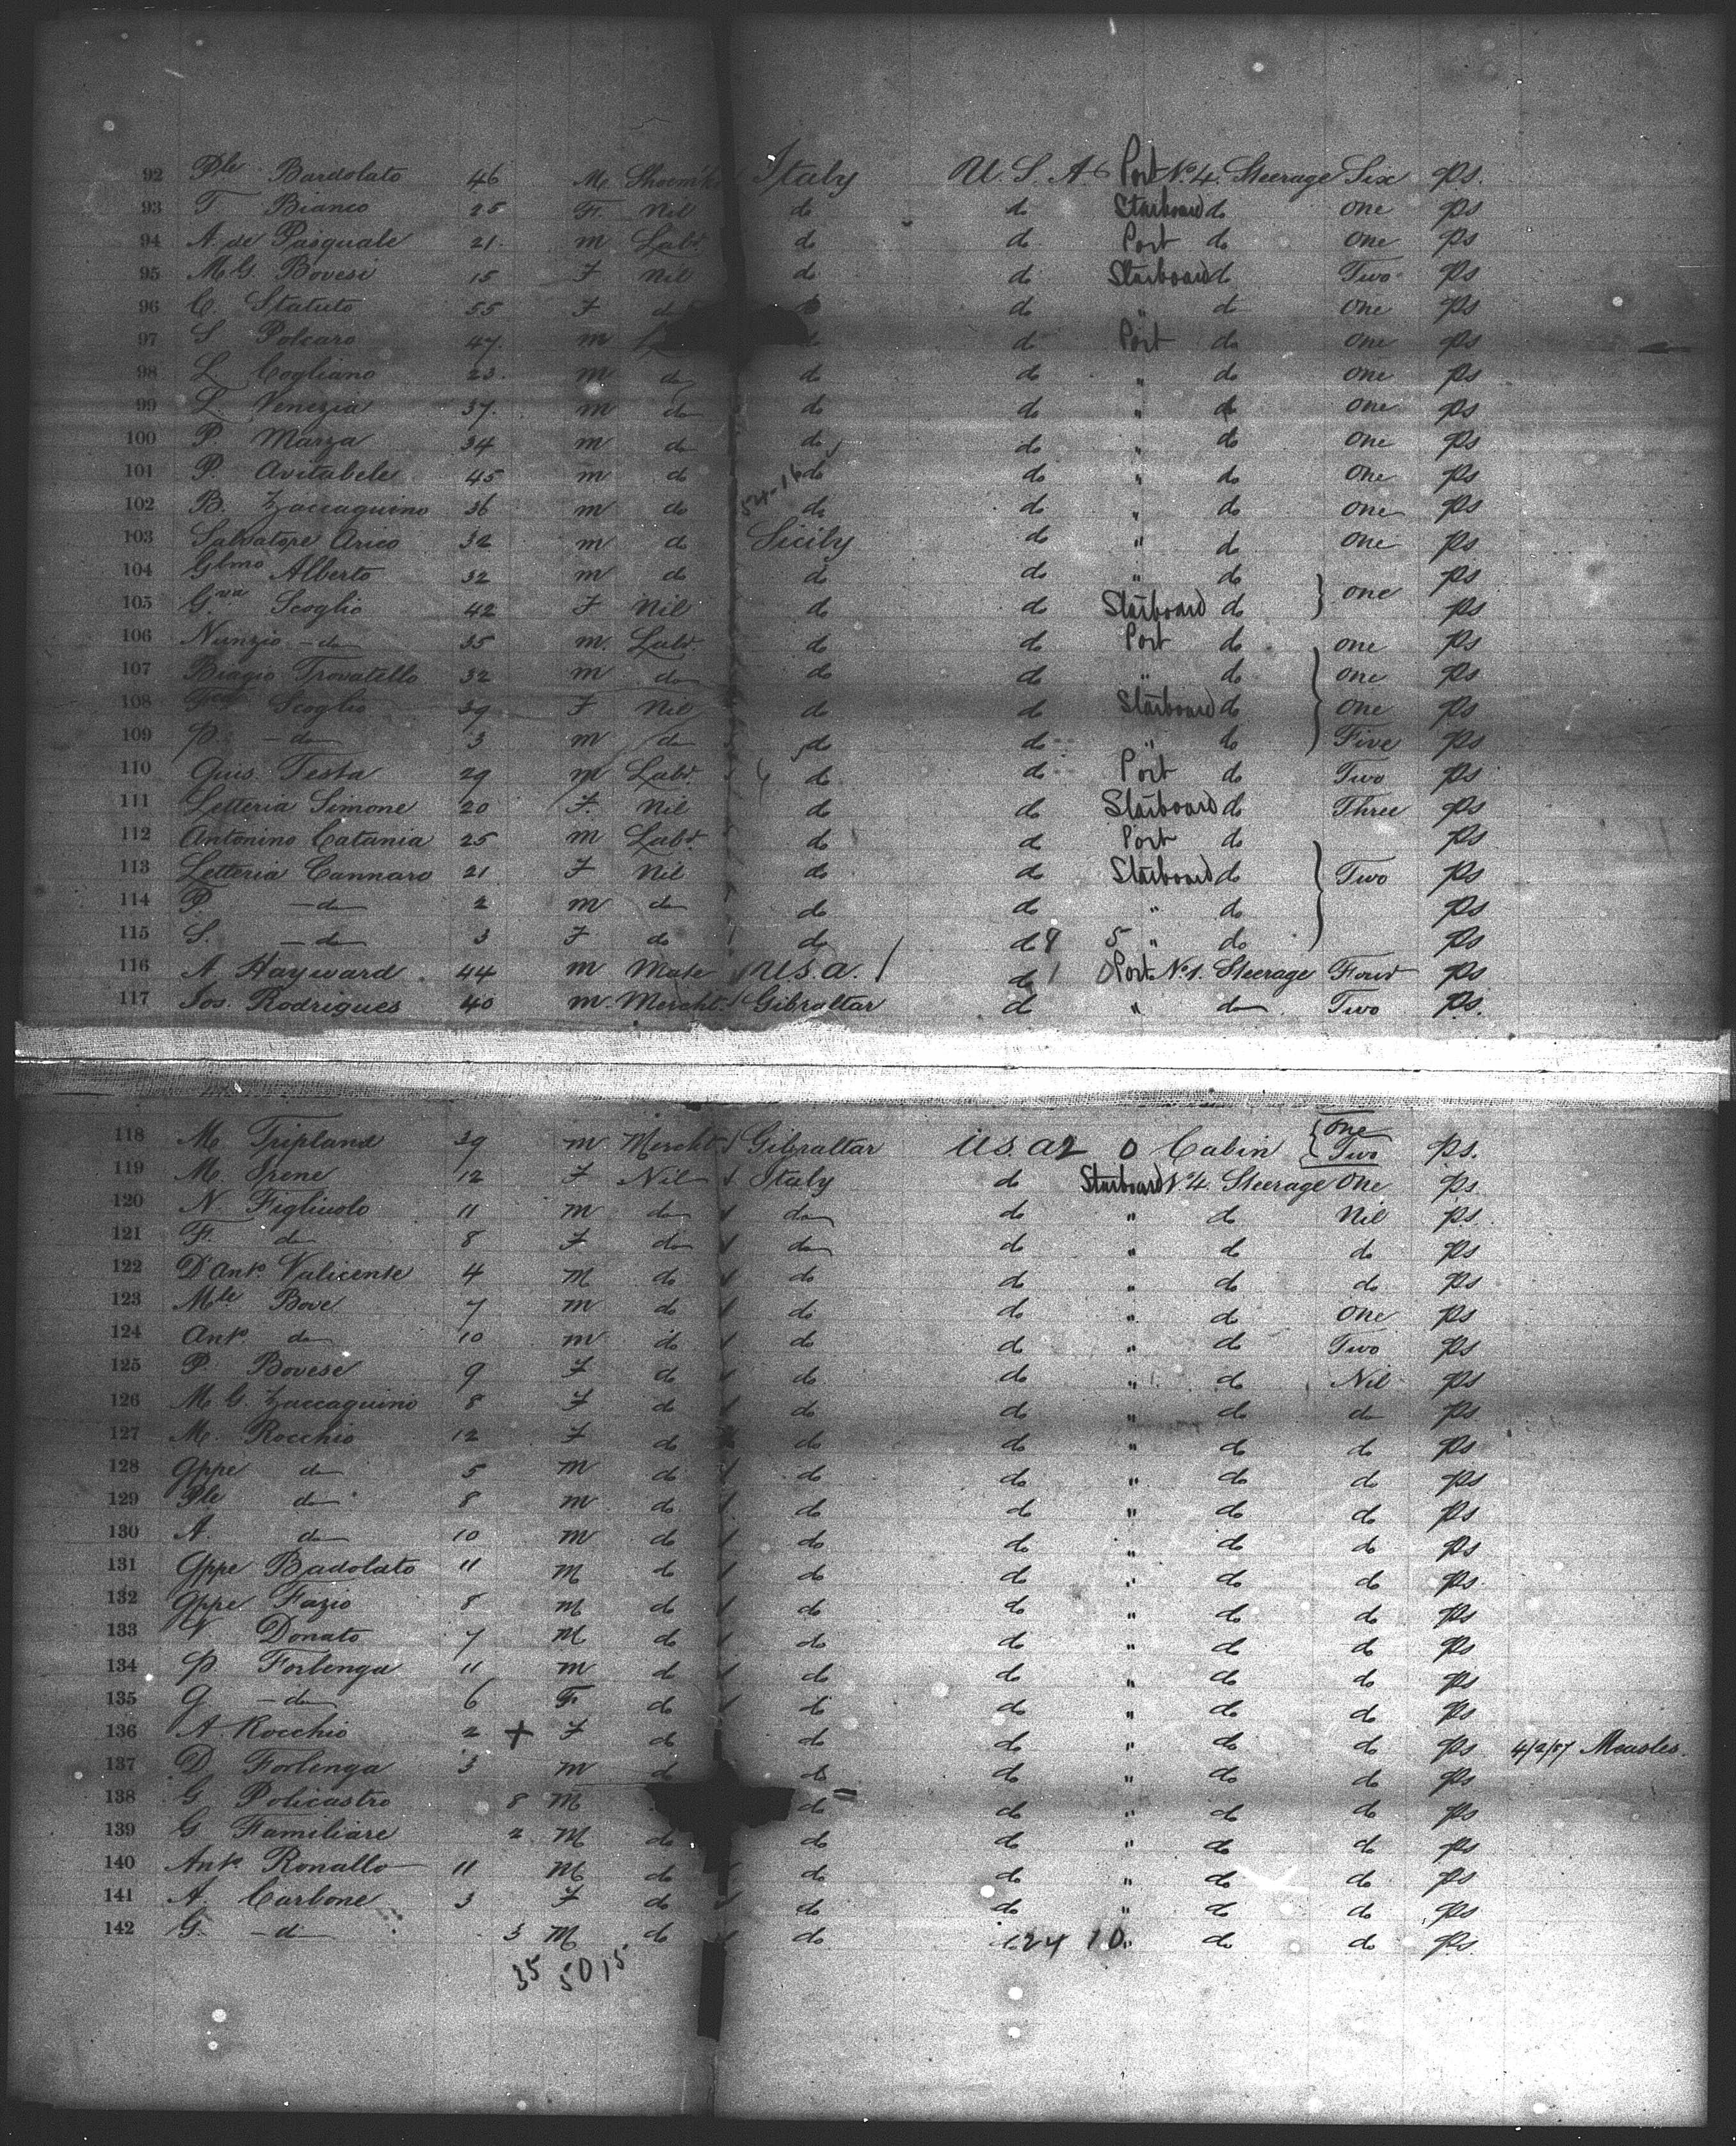 92 Ple Bardolato 46 M Shoem'kr Italy U.S.A. 6 Port No. 4. Steerage Six ps.
93 T Bianco 25 F. Nil do do Starboard do one ps
94 A de Pasquale 21. m Labr. do do Port do one ps
95 M.G. Bovesi 15 F. Nil do do Starboard do Two ps
96 C. Statuto 55 F do do do " do one ps
97 S Polcaro 47. m do do Port do one ps
98 L Cogliano 23. m do do do " do one ps
99 L. Venezia 37. m do do do " do one ps
100 P. Marza 34 m do do do " do one ps
101 P. Avitabele 45 m do do do " do one ps
102 B. Zaccaquino 36 m do do do " do one ps
103 Salvatore Arico 32 m do Sicily do " do one ps
104 Glmo Alberto 32 m do do do " do } one ps
105 Gna Scoglio 42 F Nil do do Starboard do ps
106 Nunzio - do 35 m. Labr. do do Port do one ps
107 Biagio Trovatello 32 m do do do " do one ps
108 Scoglio 39 F Nil do do Starboard do } one ps
109 P. - do 3 m do do do " do Five ps
110 Guis. Testa 29 m Labr. do do Port do Two ps
111 Letteria Simone 20 F. Nil do do Starboard do Three ps
112 Antonino Catania 25 m Labr. do do Port do ps
113 Letteria Cannaro 21 F Nil do do Starboard do } Two ps
114 P - do 2 m do do do " do ps
115 S. - do 3 F do do do 9 5 " do ps
116 A Hayward 44 m Mate U.S.A. do 1 0 Port No. 1. Steerage Four ps
117 Jos. Rodrigues 40 m. Mercht. Gibraltar do " do Two ps.
118 M Tripland 39 m Mercht Gibraltar U.S.A 2 0 Cabin { one Two ps.
119 M. Irene 12 F Nil Italy do Starboard No 4. Steerage one ps.
120 N. Figliuolo 11 m do do do " do Nil ps.
121 F. do 8 F do do do " do do ps
122 D'Anto. Valicente 4 M do do do " do do ps
123 Mle Bove 7 m do do do " do one ps
124 Anto do 10 m do do do " do Two ps
125 P. Bovese 9 F do do do " do Nil ps
126 M G. Zaccaquino 8 F. do do do " do do ps
127 M. Rocchio 12 F do do do " do do ps
128 Gppe do 5 m do do do " do do ps
129 Ple do 8 m do do do " do do ps
130 A. do 10 m do do do " do do ps
131 Gppe Badolato 11 M do do do " do do ps
132 Gppe Fazio 8 M do do do " do do ps
133 V Donato 7 M do do do " do do ps
134 P. Forlenga 11 m do do do " do do ps
135 G. - do 6 F. do do do " do do ps
136 A. Rocchio 2 + F do do do " do do ps 4/2/87 Measles.
137 D. Forlenga 3 m do do do " do do ps
138 G Policastro 8 M do do " do do ps
139 G Familiare 2 M do do do " do do ps
140 Anto Ronallo 11 M do do do " do do ps
141 A. Carbone 3 F do do do " do do ps
142 G. - do 3 M do do do 24 10 " do do ps
35 50 15